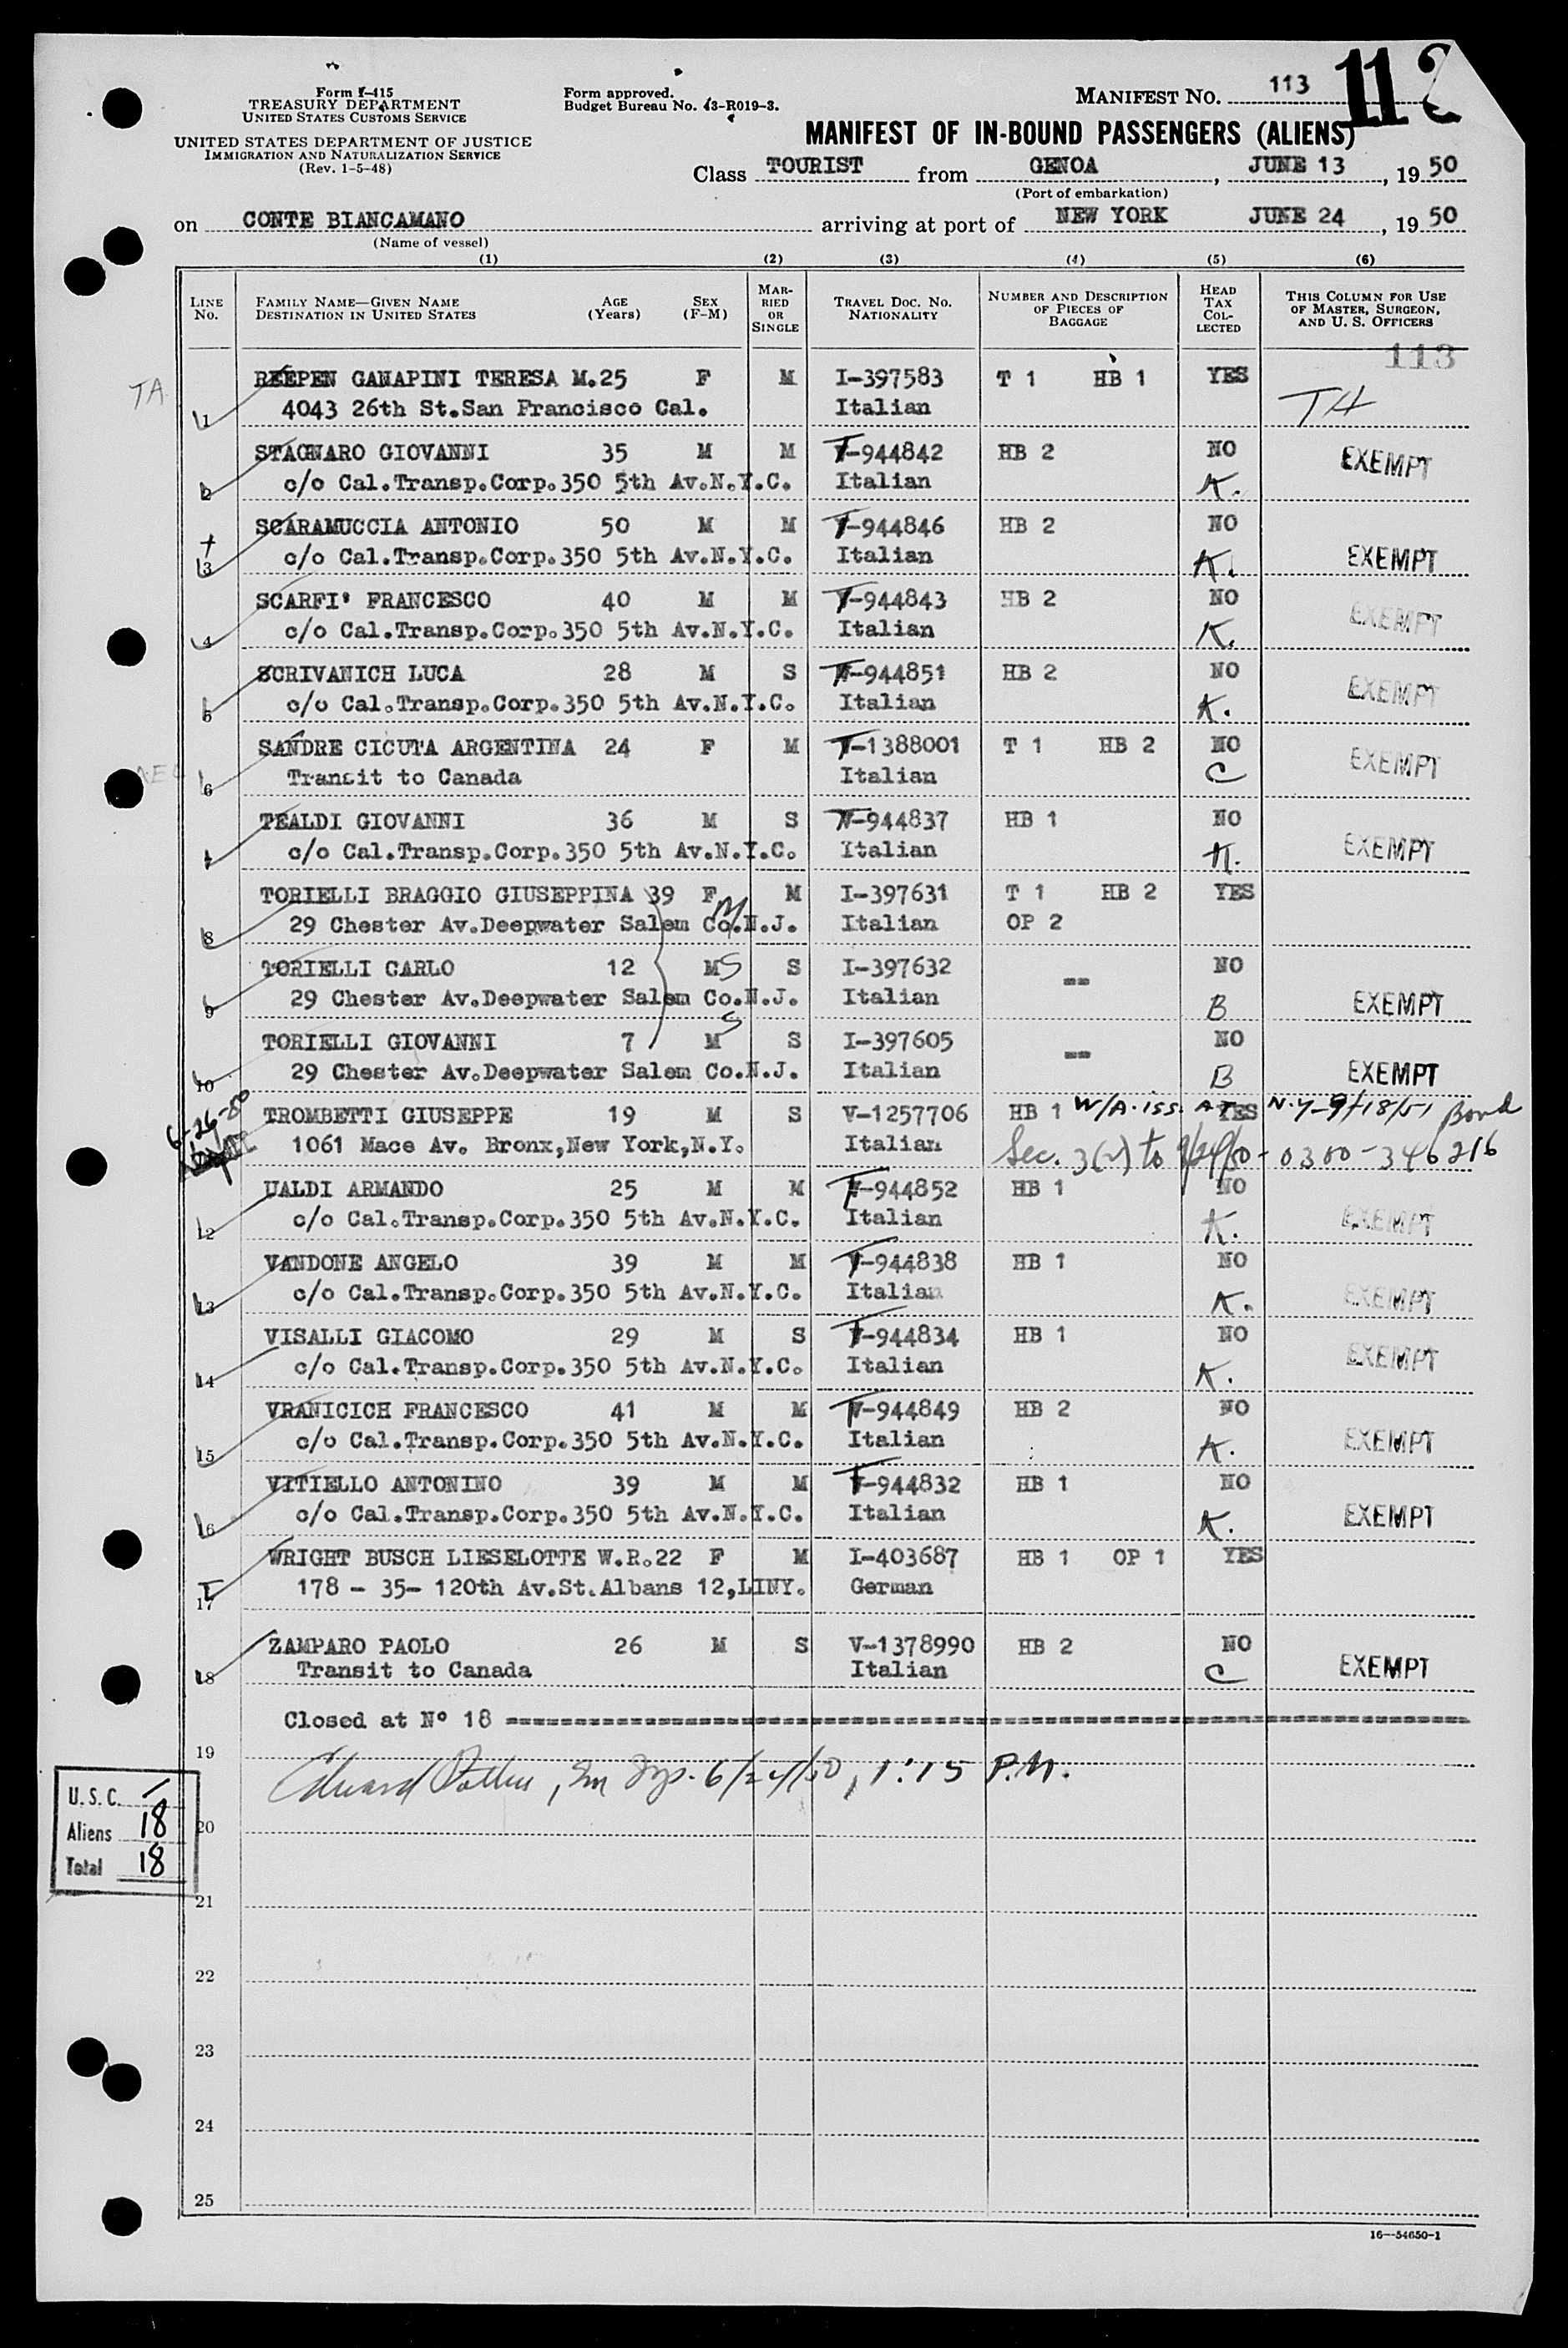 Form I-415
TREASURY DEPARTMENT
UNITED STATES CUSTOMS SERVICE
UNITED STATES DEPARTMENT OF JUSTICE
IMMIGRATION AND NATURALIZATION SERVICE
(Rev. 1-5-48)
Form approved.
Budget Bureau No. 43-R019-3.
MANIFEST NO. 113
MANIFEST OF IN-BOUND PASSENGERS (ALIENS)
Class TOURIST from GENOA, JUNE 13, 19 50
(Port of embarkation)
on CONTE BIANCAMANO arriving at port of NEW YORK JUNE 24, 19 50
(Name of vessel)
(1) (2) (3) (4) (5) (6)
LINE No. FAMILY NAME—GIVEN NAME DESTINATION IN UNITED STATES AGE (Years) SEX (F-M) MARRIED OR SINGLE TRAVEL DOC. NO. NATIONALITY NUMBER AND DESCRIPTION OF PIECES OF BAGGAGE HEAD TAX COLLECTED THIS COLUMN FOR USE OF MASTER, SURGEON, AND U. S. OFFICERS
113
TA REEPEN GANAPINI TERESA M. 25 F M I-397583 T 1 HB 1 YES
1 4043 26th St.San Francisco Cal. Italian
STAGNARO GIOVANNI 35 M M T-944842 HB 2 NO EXEMPT
2 c/o Cal.Transp.Corp.350 5th Av.N.Y.C. Italian K.
SCARAMUCCIA ANTONIO 50 M M T-944846 HB 2 NO
3 c/o Cal.Transp.Corp.350 5th Av.N.Y.C. Italian K. EXEMPT
SCARFI' FRANCESCO 40 M M T-944843 HB 2 NO
4 c/o Cal.Transp.Corp.350 5th Av.N.Y.C. Italian K. EXEMPT
SCRIVANICH LUCA 28 M S T-944851 HB 2 NO
5 c/o Cal.Transp.Corp.350 5th Av.N.Y.C. Italian K. EXEMPT
SANDRE CICUTA ARGENTINA 24 F M T-1388001 T 1 HB 2 NO
6 Transit to Canada Italian C EXEMPT
TEALDI GIOVANNI 36 M S T-944837 HB 1 NO
c/o Cal.Transp.Corp.350 5th Av.N.Y.C. Italian K. EXEMPT
TORIELLI BRAGGIO GIUSEPPINA 39 F M I-397631 T 1 HB 2 YES
8 29 Chester Av.Deepwater Salem Co.N.J. Italian OP 2
TORIELLI CARLO 12 M S S I-397632 -- NO
9 29 Chester Av.Deepwater Salem Co.N.J. Italian B EXEMPT
TORIELLI GIOVANNI 7 M S S I-397605 -- NO
10 29 Chester Av.Deepwater Salem Co.N.J. Italian B EXEMPT
6-26-50 TROMBETTI GIUSEPPE 19 M S V-1257706 HB 1 W/A iss. AT YES N.Y-9/18/51 Bond
1061 Mace Av. Bronx,New York,N.Y. Italian Sec. 3(2) to 9/24/50 - 0300-346216
UALDI ARMANDO 25 M M T-944852 HB 1 NO
12 c/o Cal.Transp.Corp.350 5th Av.N.Y.C. Italian K. EXEMPT
VANDONE ANGELO 39 M M T-944838 HB 1 NO
13 c/o Cal.Transp.Corp.350 5th Av.N.Y.C. Italian K. EXEMPT
VISALLI GIACOMO 29 M S T-944834 HB 1 NO
14 c/o Cal.Transp.Corp.350 5th Av.N.Y.C. Italian K. EXEMPT
VRANICICH FRANCESCO 41 M M T-944849 HB 2 NO
15 c/o Cal.Transp.Corp.350 5th Av.N.Y.C. Italian K. EXEMPT
VITIELLO ANTONINO 39 M M T-944832 HB 1 NO
16 c/o Cal.Transp.Corp.350 5th Av.N.Y.C. Italian K. EXEMPT
WRIGHT BUSCH LIESELOTTE W.R. 22 F M I-403687 HB 1 OP 1 YES
17 178 - 35- 120th Av.St.Albans 12,LINY. German
ZAMPARO PAOLO 26 M S V-1378990 HB 2 NO
18 Transit to Canada Italian C EXEMPT
Closed at Nº 18
19
Edward 6/24/50, 1:15 P.M.
U.S.C. /
Aliens 18
Total 18
20
21
22
23
24
25
16—54650-1